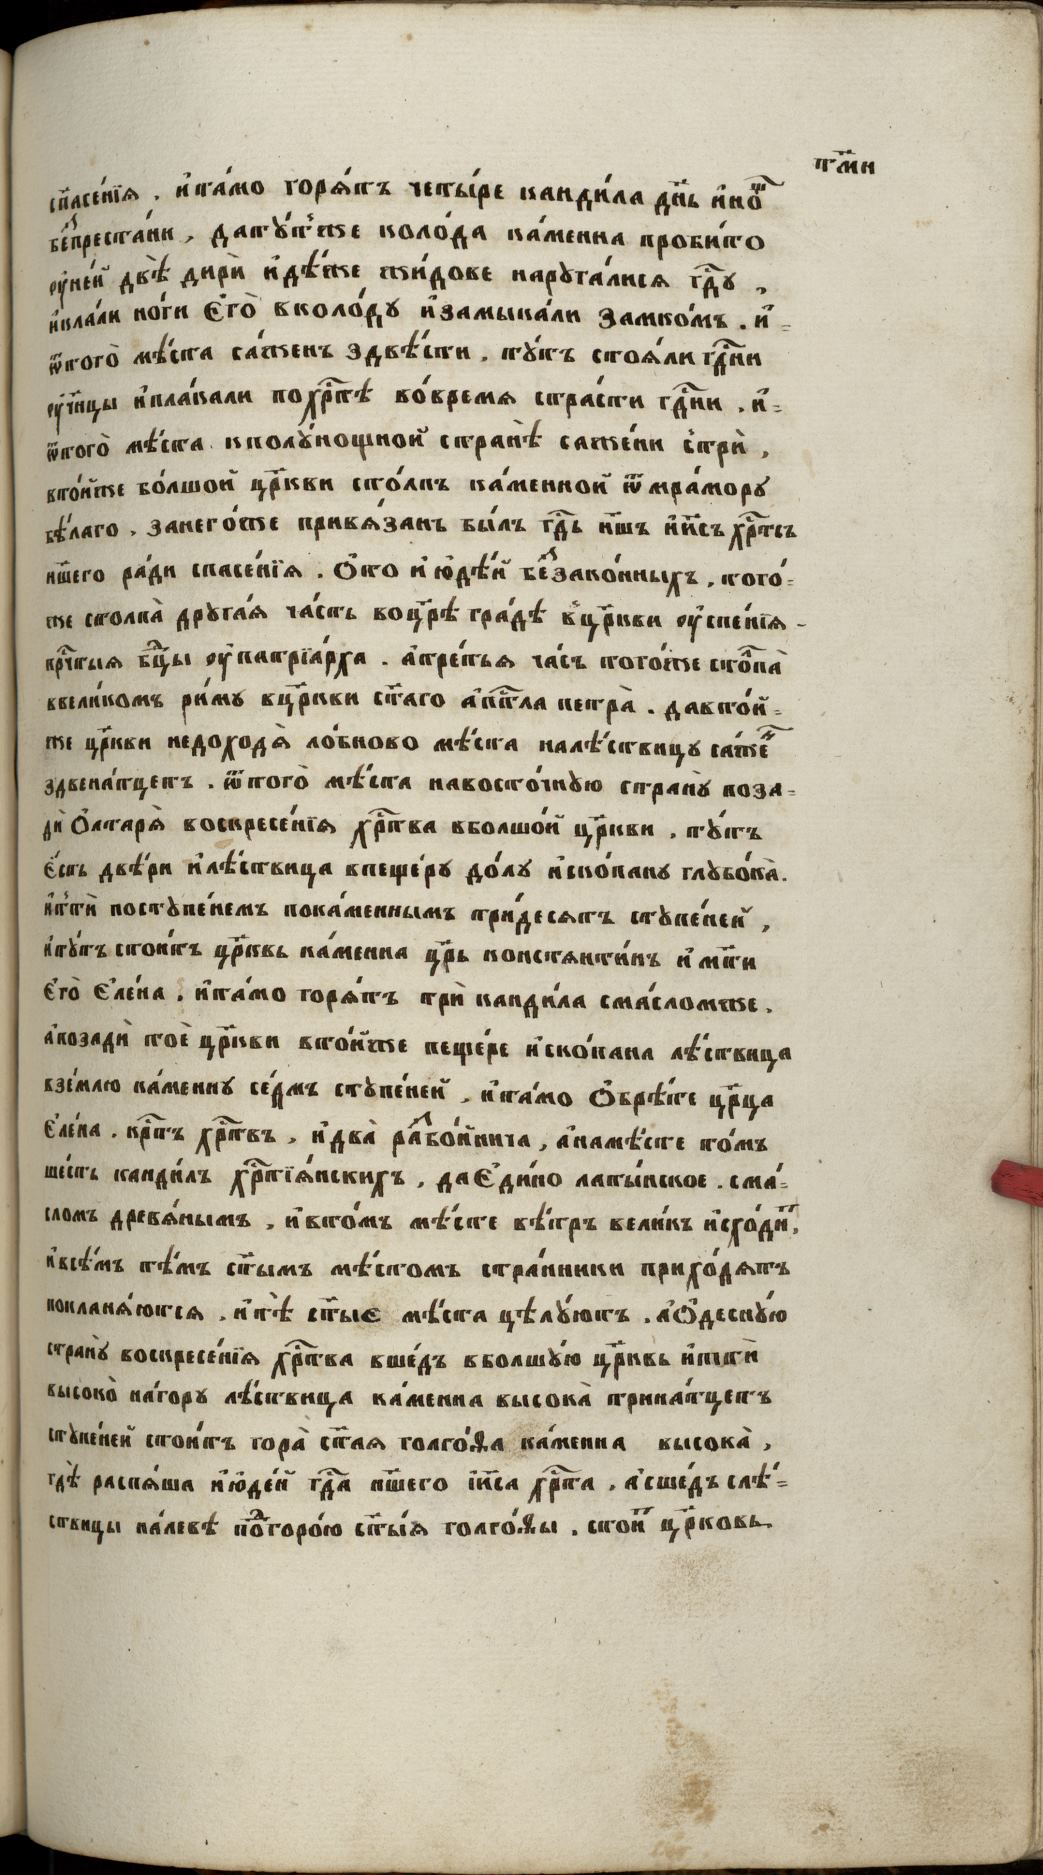 тм҃и
сп҃асе́нїѧ . и҆та́мо горѧ́тъ четы́ре канди́ла дн҃ь и҆но́щ
бе́спреста́ни , дату́тже коло́да ка́менна проби́то
ѹ҆не́й двѣ̀ дирѝ и҆дѣ́же жи́дове наруга́лисѧ гд҃у ,
и҆кла́ли но́ги є҆гѡ̀ вколо́ду и҆замыка́ли замко́мъ . и҆ =
ѿтогѡ̀ мѣ́ста са́женъ здвѣ́сти . ту́тъ стоѧ́ли гд҃ни
ѹ҆ч҃нцы и҆пла́кали похр҃тѣ во́времѧ стра́сти гд҃ни . и҆ =
ѿтого̀ мѣ́ста кполу́нощной странѣ̀ саже́ни стрѝ ,
вто́йже бо́лшой цр҃кви сто́лпъ ка́менной ѿ мра́мору
бѣ́лаго . занего́же привѧ́занъ бы́лъ гд҃ь н҃шъ і҆и҃съ хр҃тсъ
н҃шего ра́ди спасе́нїѧ . ѡ҆то и҆юдѣ́й бе́ззако́нныхъ , того́ =
же столпа̀ друга́ѧ ча́сть воцр҃ѣ гра́дѣ вцр҃кви ѹ҆спе́нїѧ -
прч҃тыѧ бц҃ы ѹ҆патрїа́рха . а҆тре́тьѧ ча́сть тогѡ́же стопа̀
ввели́комъ ри́му вцр҃кви ст҃аго а҆пт҃ла петра̀ . давто́й =
же цр҃кви недоходѧ̀ ло́бново мѣ́ста налѣ́ствицу са́же
здвена́тцеть . ѿтого̀ мѣ́ста навосто́чную страну̀ поза =
дѝ ѻ҆лтарѧ̀ воскресе́нїѧ хр҃тва вболшо́й цр҃кви . ту́тъ
є҆́сть две́ри и҆лѣ́ствица впеще́ру до́лу и҆ско́пану глубо́ка̀ .
и҆ттѝ поступе́немъ пока́меннымъ три́десѧтъ ступе́ней ,
и҆ту́тъ стои́тъ цр҃квь ка́менна цр҃ь констѧнти́нъ и҆ мт҃и
є҆го̀ є҆ле́на . и҆та́мо горѧ́тъ трѝ канди́ла сма́сломже .
а҆позадѝ тоѐ цр҃кви вто́йже пеще́ре и҆ско́пана лѣ́ствица
взе́млю ка́менну се́дмъ ступе́ней , и҆та́мо ѡ҆брѣ́те цр҃ца
є҆ле́на . кр҃тъ хр҃твъ . и҆два̀ разбо́йнича , а҆намѣ́сте то́мъ
ше́сть канди́лъ хр҃тїѧ́нскихъ , дає҆ди́но латы́нское . сма́ =
сломъ древѧ́нымъ , и҆вто́мъ мѣ́сте вѣ́тръ вели́къ и҆схо́дит ,
и҆всѣ́мъ тѣ́мъ ст҃ымъ мѣ́стомъ стра́нники прихо́дѧтъ
поклана́ютсѧ . и҆тѣ̀ ст҃ыє мѣ́ста цѣлу́ютъ . а҆ѻ҆десну́ю
страну̀ воскресе́нїѧ хр҃тва вше́дъ вболшу́ю цр҃квь и҆ттѝ
высоко̀ на́гору лѣ́ствица ка́менна высока̀ трина́тцеть
ступе́ней стои́тъ гора̀ ст҃аѧ голго́ѳа ка́менна высока̀ ,
гдѣ̀ распѧ́ша и҆юде́й гд҃а н҃шего і҆и҃са хр҃та . а҆сше́дъ слѣ́ =
ствицы на́левѣ подгоро́ю ст҃ы́ѧ голго́ѳы . стои́т цр҃ковь .